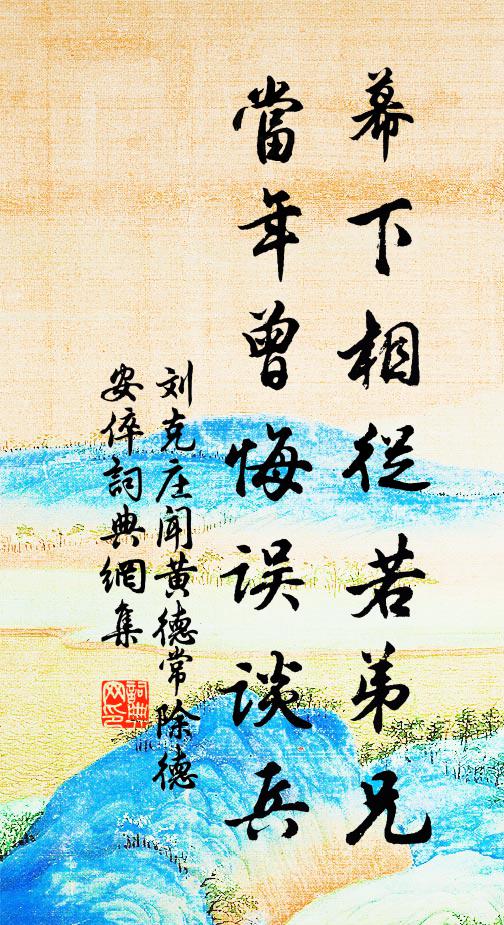 幕下相從若弟兄
當年曾悔误談兵
刘克庄闻黄德常除德
安倅詞典網集
詞典网印